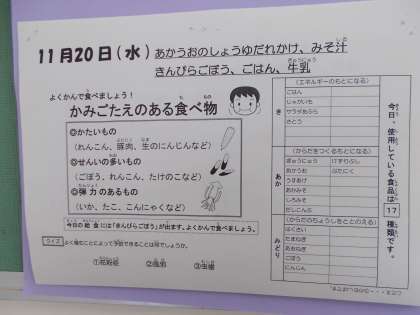 11月20日(水) あかうおのしょうゆだれかけ、みそ汁
きんぴらごぼう、ごはん、牛乳
よくかんで食べましょう!
かみごたえのある食べ物
◎かたいもの
(れんこん、豚肉、生のにんじんなど)
◎せんいの多いもの
(ごぼう、れんこん、たけのこなど)
◎弾力のあるもの
(いか、たこ、こんにゃくなど)
今日の給食には「きんぴらごぼう」が出ます。よくかんで食べましょう。
クイズ よく噛むことによって予防できることは何でしょうか。
①花粉症 ②風邪 ③虫歯
(エネルギーのもとになる)
き
ごはん
じゃがいも
サラダあぶら
さとう
(からだをつくるもとになる)
あか
ぎゅうにゅう けずりぶし
あかうお ぶたにく
うすあげ
あかみそ
しろみそ
だしこんぶ
(からだのちょうしをととのえる)
みどり
はくさい
たまねぎ
あおねぎ
ごぼう
にんじん
今日、使用している食品は17種類です。